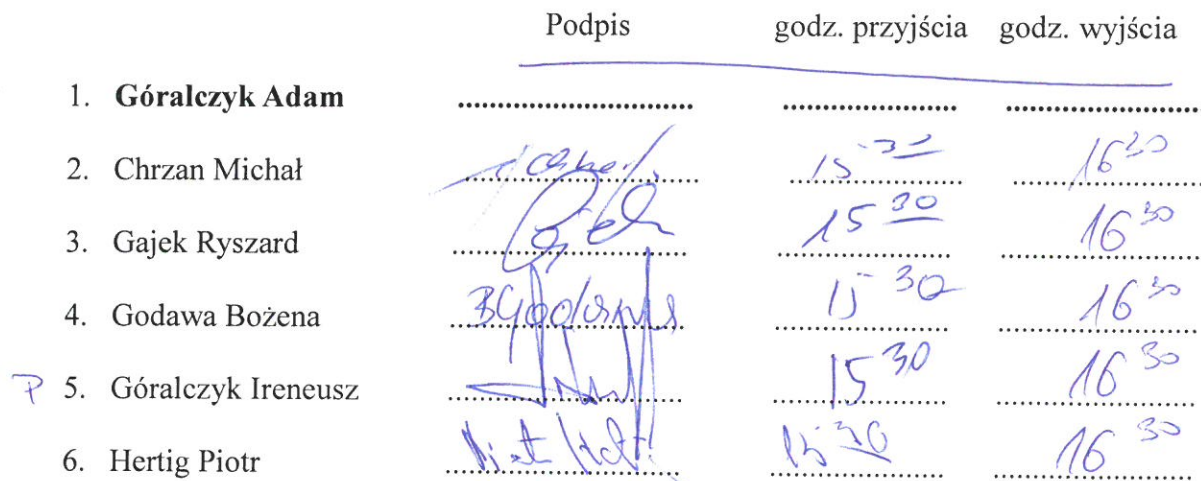 Podpis godz. przyjścia godz. wyjścia
1. Góralczyk Adam
2. Chrzan Michał 15 30 16 30
3. Gajek Ryszard 15 30 16 30
4. Godawa Bożena BGodawa 15 30 16 30
P 5. Góralczyk Ireneusz 15 30 16 30
6. Hertig Piotr 15 30 16 30